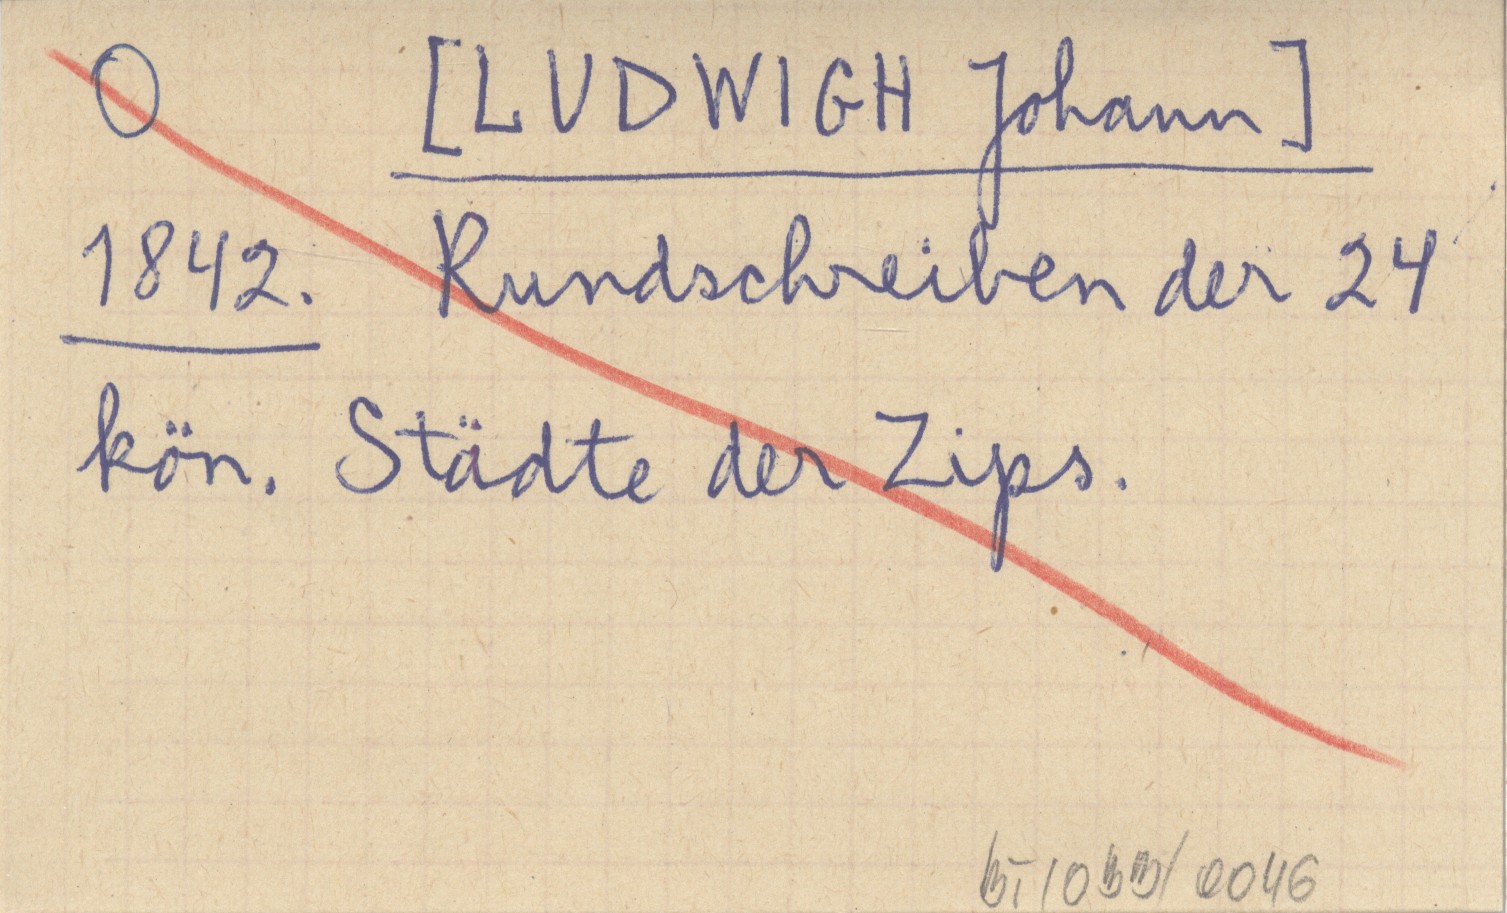 O [LUDWIGH Johann]
1842. Rundschreiben der 24
kön. Städte der Zips.
0046